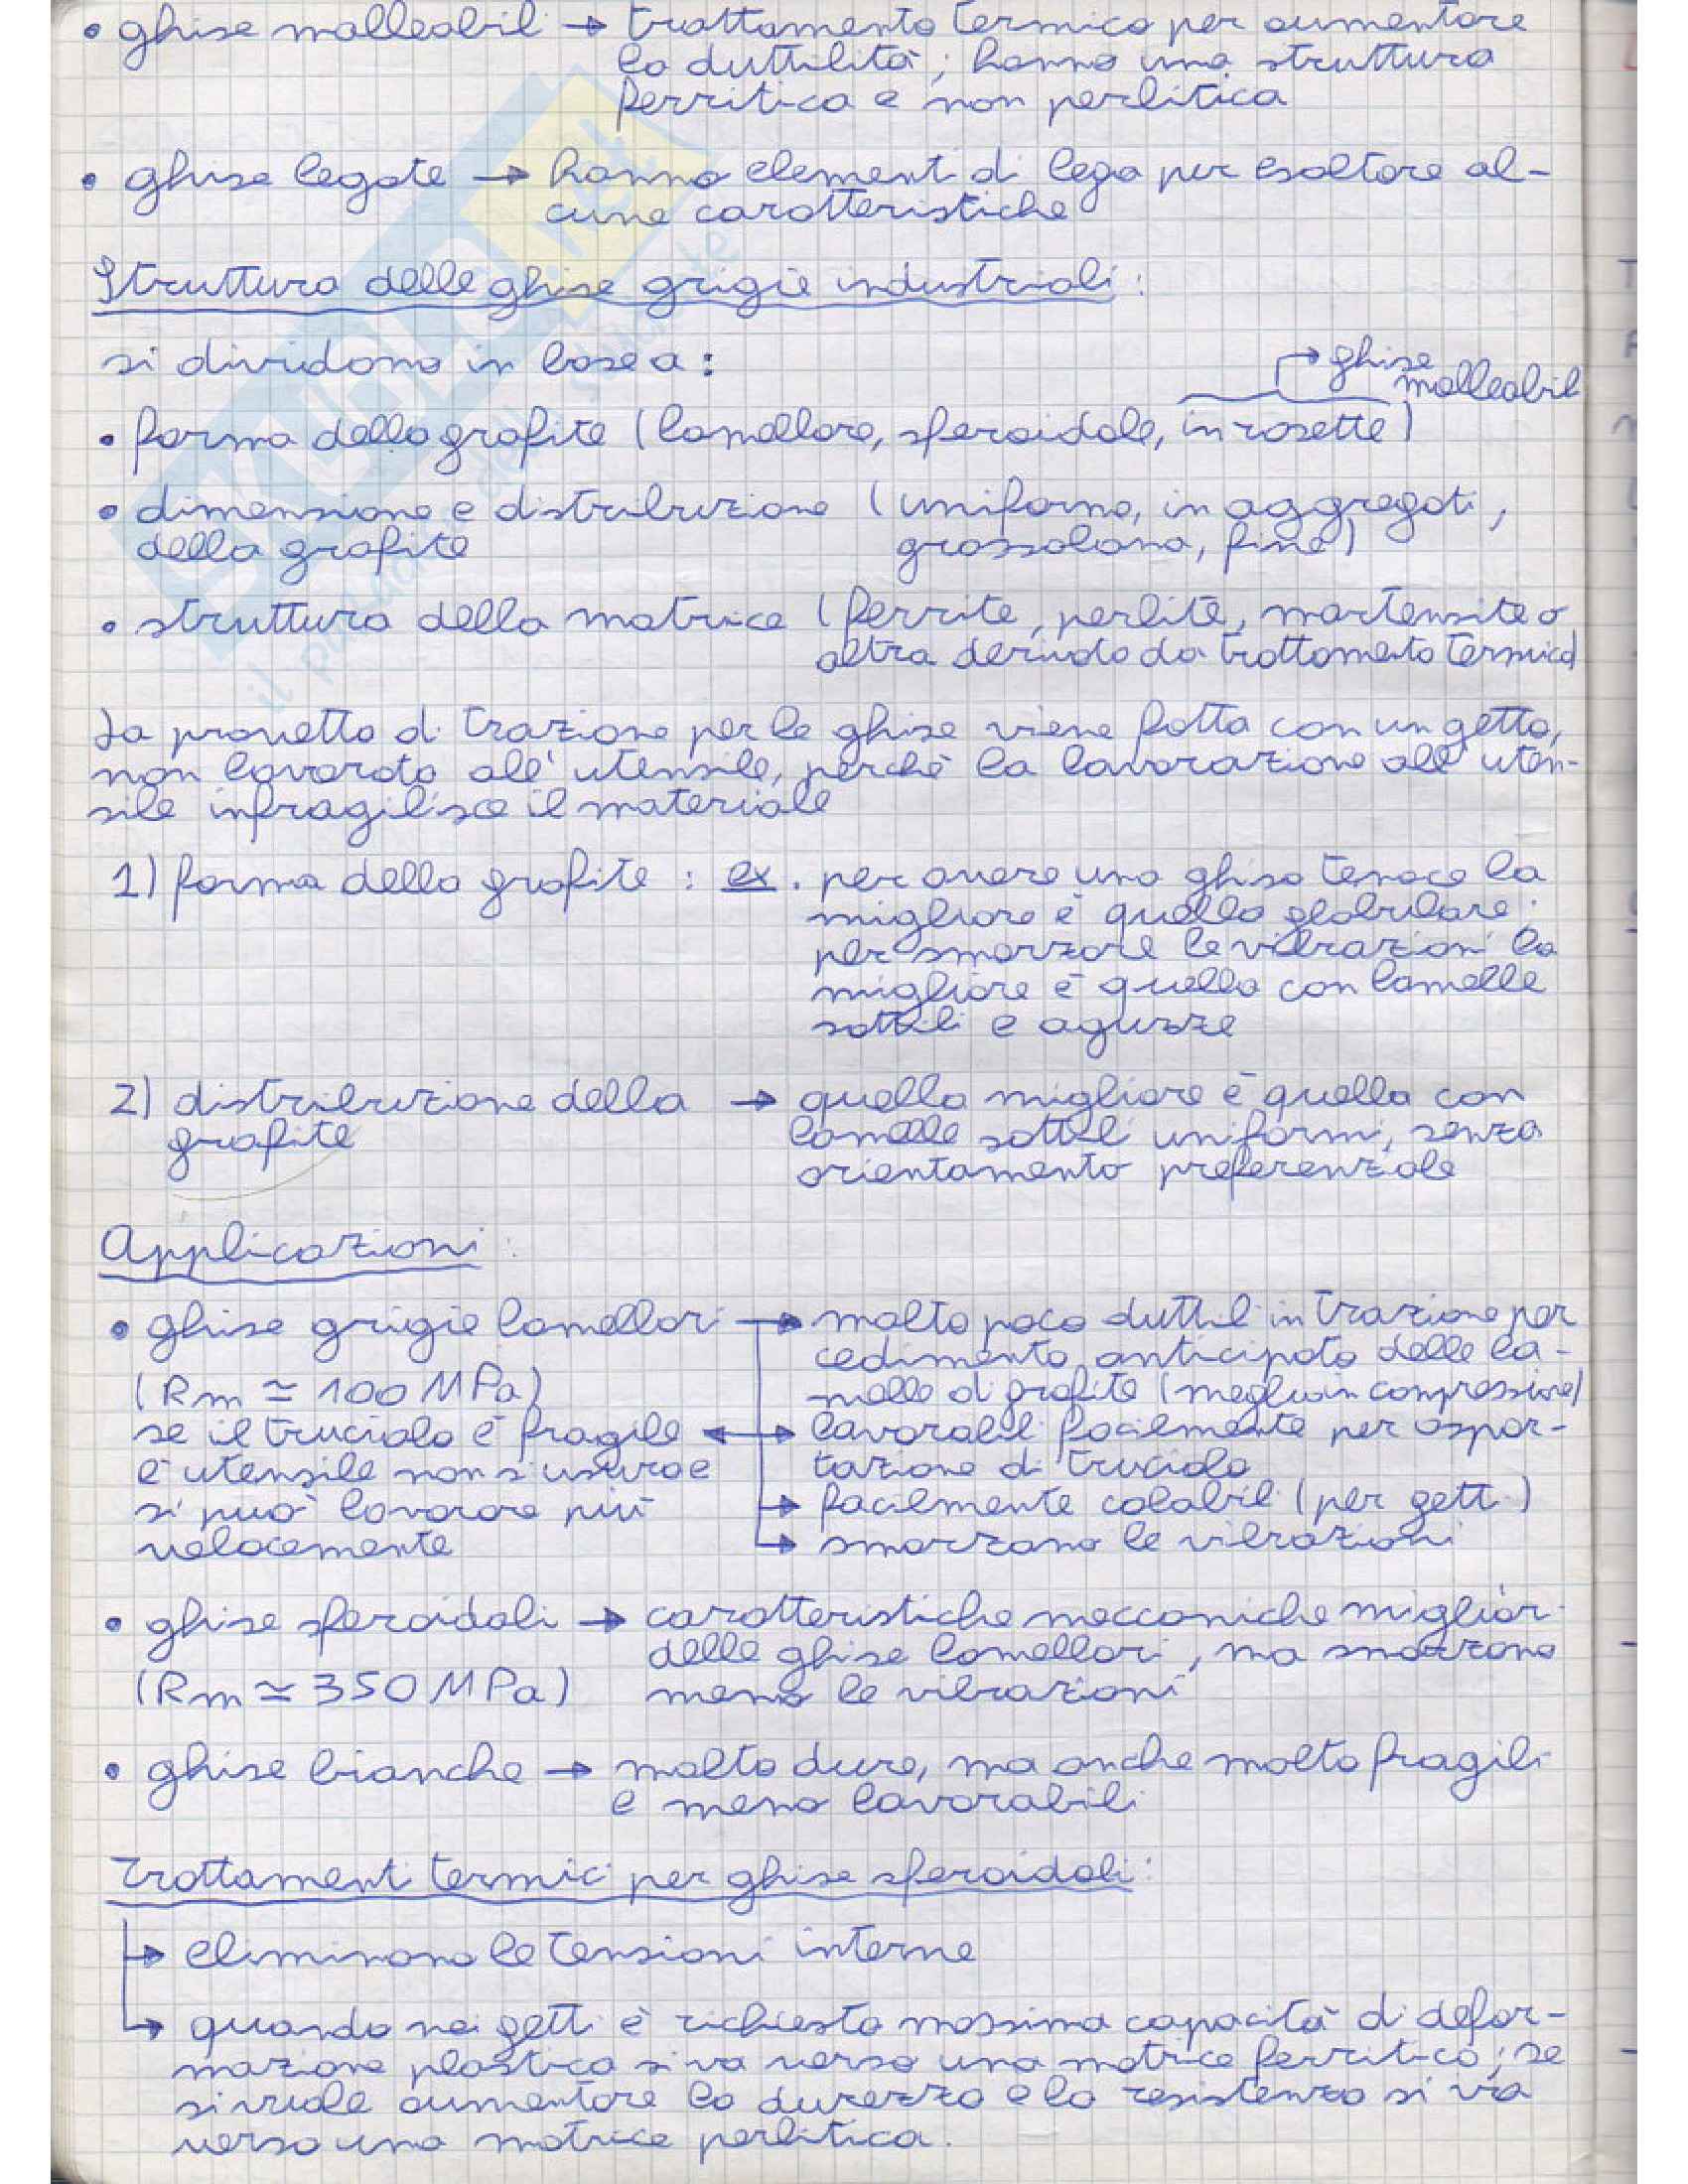 • ghise malleabili → trattamento termico per aumentare
la duttilità; hanno una struttura
ferritica e non perlitica
• ghise legate → hanno elementi di lega per esaltare al-
cune caratteristiche
Struttura delle ghise grigie industriali:
si dividono in base a:
→ ghise
malleabili
• forma della grafite (lamellare, sferoidale, in rosette)
• dimensione e distribuzione (uniforme, in aggregati,
della grafite grossolana, fine)
• struttura della matrice (ferrite, perlite, martensite o
altra derivata da trattamento termico)
La provetta di trazione per le ghise viene fatta con un getto,
non lavorato all'utensile, perchè la lavorazione all'uten-
sile infragilisce il materiale
1) forma della grafite: ex. per avere una ghisa tenace la
migliore è quella globulare;
per smorzare le vibrazioni la
migliore è quella con lamelle
sottili e aguzze
2) distribuzione della → quella migliore è quella con
grafite lamelle sottili uniformi, senza
orientamento preferenziale
Applicazioni:
• ghise grigie lamellari → molto poco duttili in trazione per
cedimento anticipato delle la-
(Rm ≃ 100 MPa) melle di grafite (meglio in compressione)
se il truciolo è fragile ← → lavorabili facilmente per aspor-
l'utensile non s'usura e tazione di truciolo
si può lavorare più → facilmente colabili (per getti)
velocemente → smorzano le vibrazioni
• ghise sferoidali → caratteristiche meccaniche migliori
delle ghise lamellari, ma smorzano
(Rm ≃ 350 MPa) meno le vibrazioni
• ghise bianche → molto dure, ma anche molto fragili
e meno lavorabili
Trattamenti termici per ghise sferoidali:
→ eliminano le tensioni interne
→ quando nei getti è richiesta massima capacità di defor-
mazione plastica si va verso una matrice ferritica; se
si vuole aumentare la durezza e la resistenza si va
verso una matrice perlitica.
SKUOLA.net
il paradiso dello studente